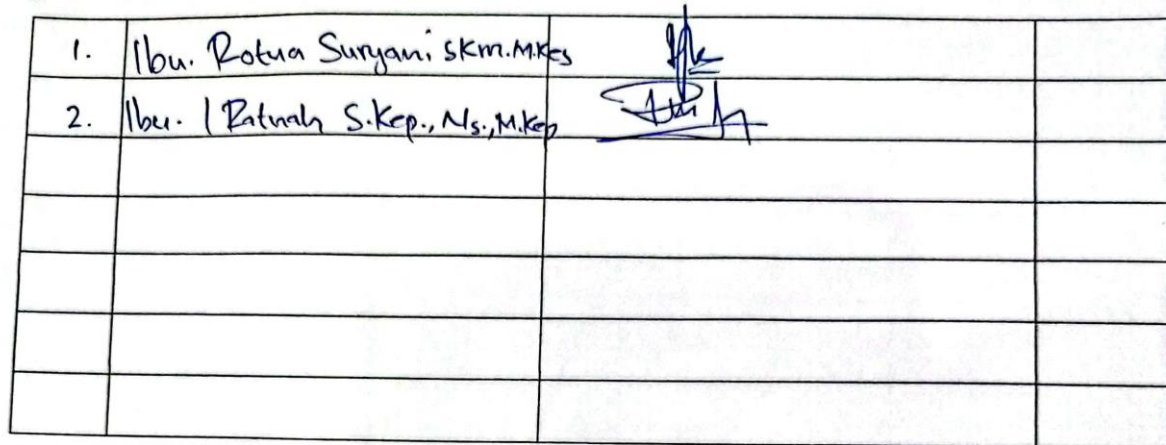 1. Ibu. Rotua Suryani SKM.M.Kes
2. Ibu. I Ratnah S.Kep., Ns., M.Kep